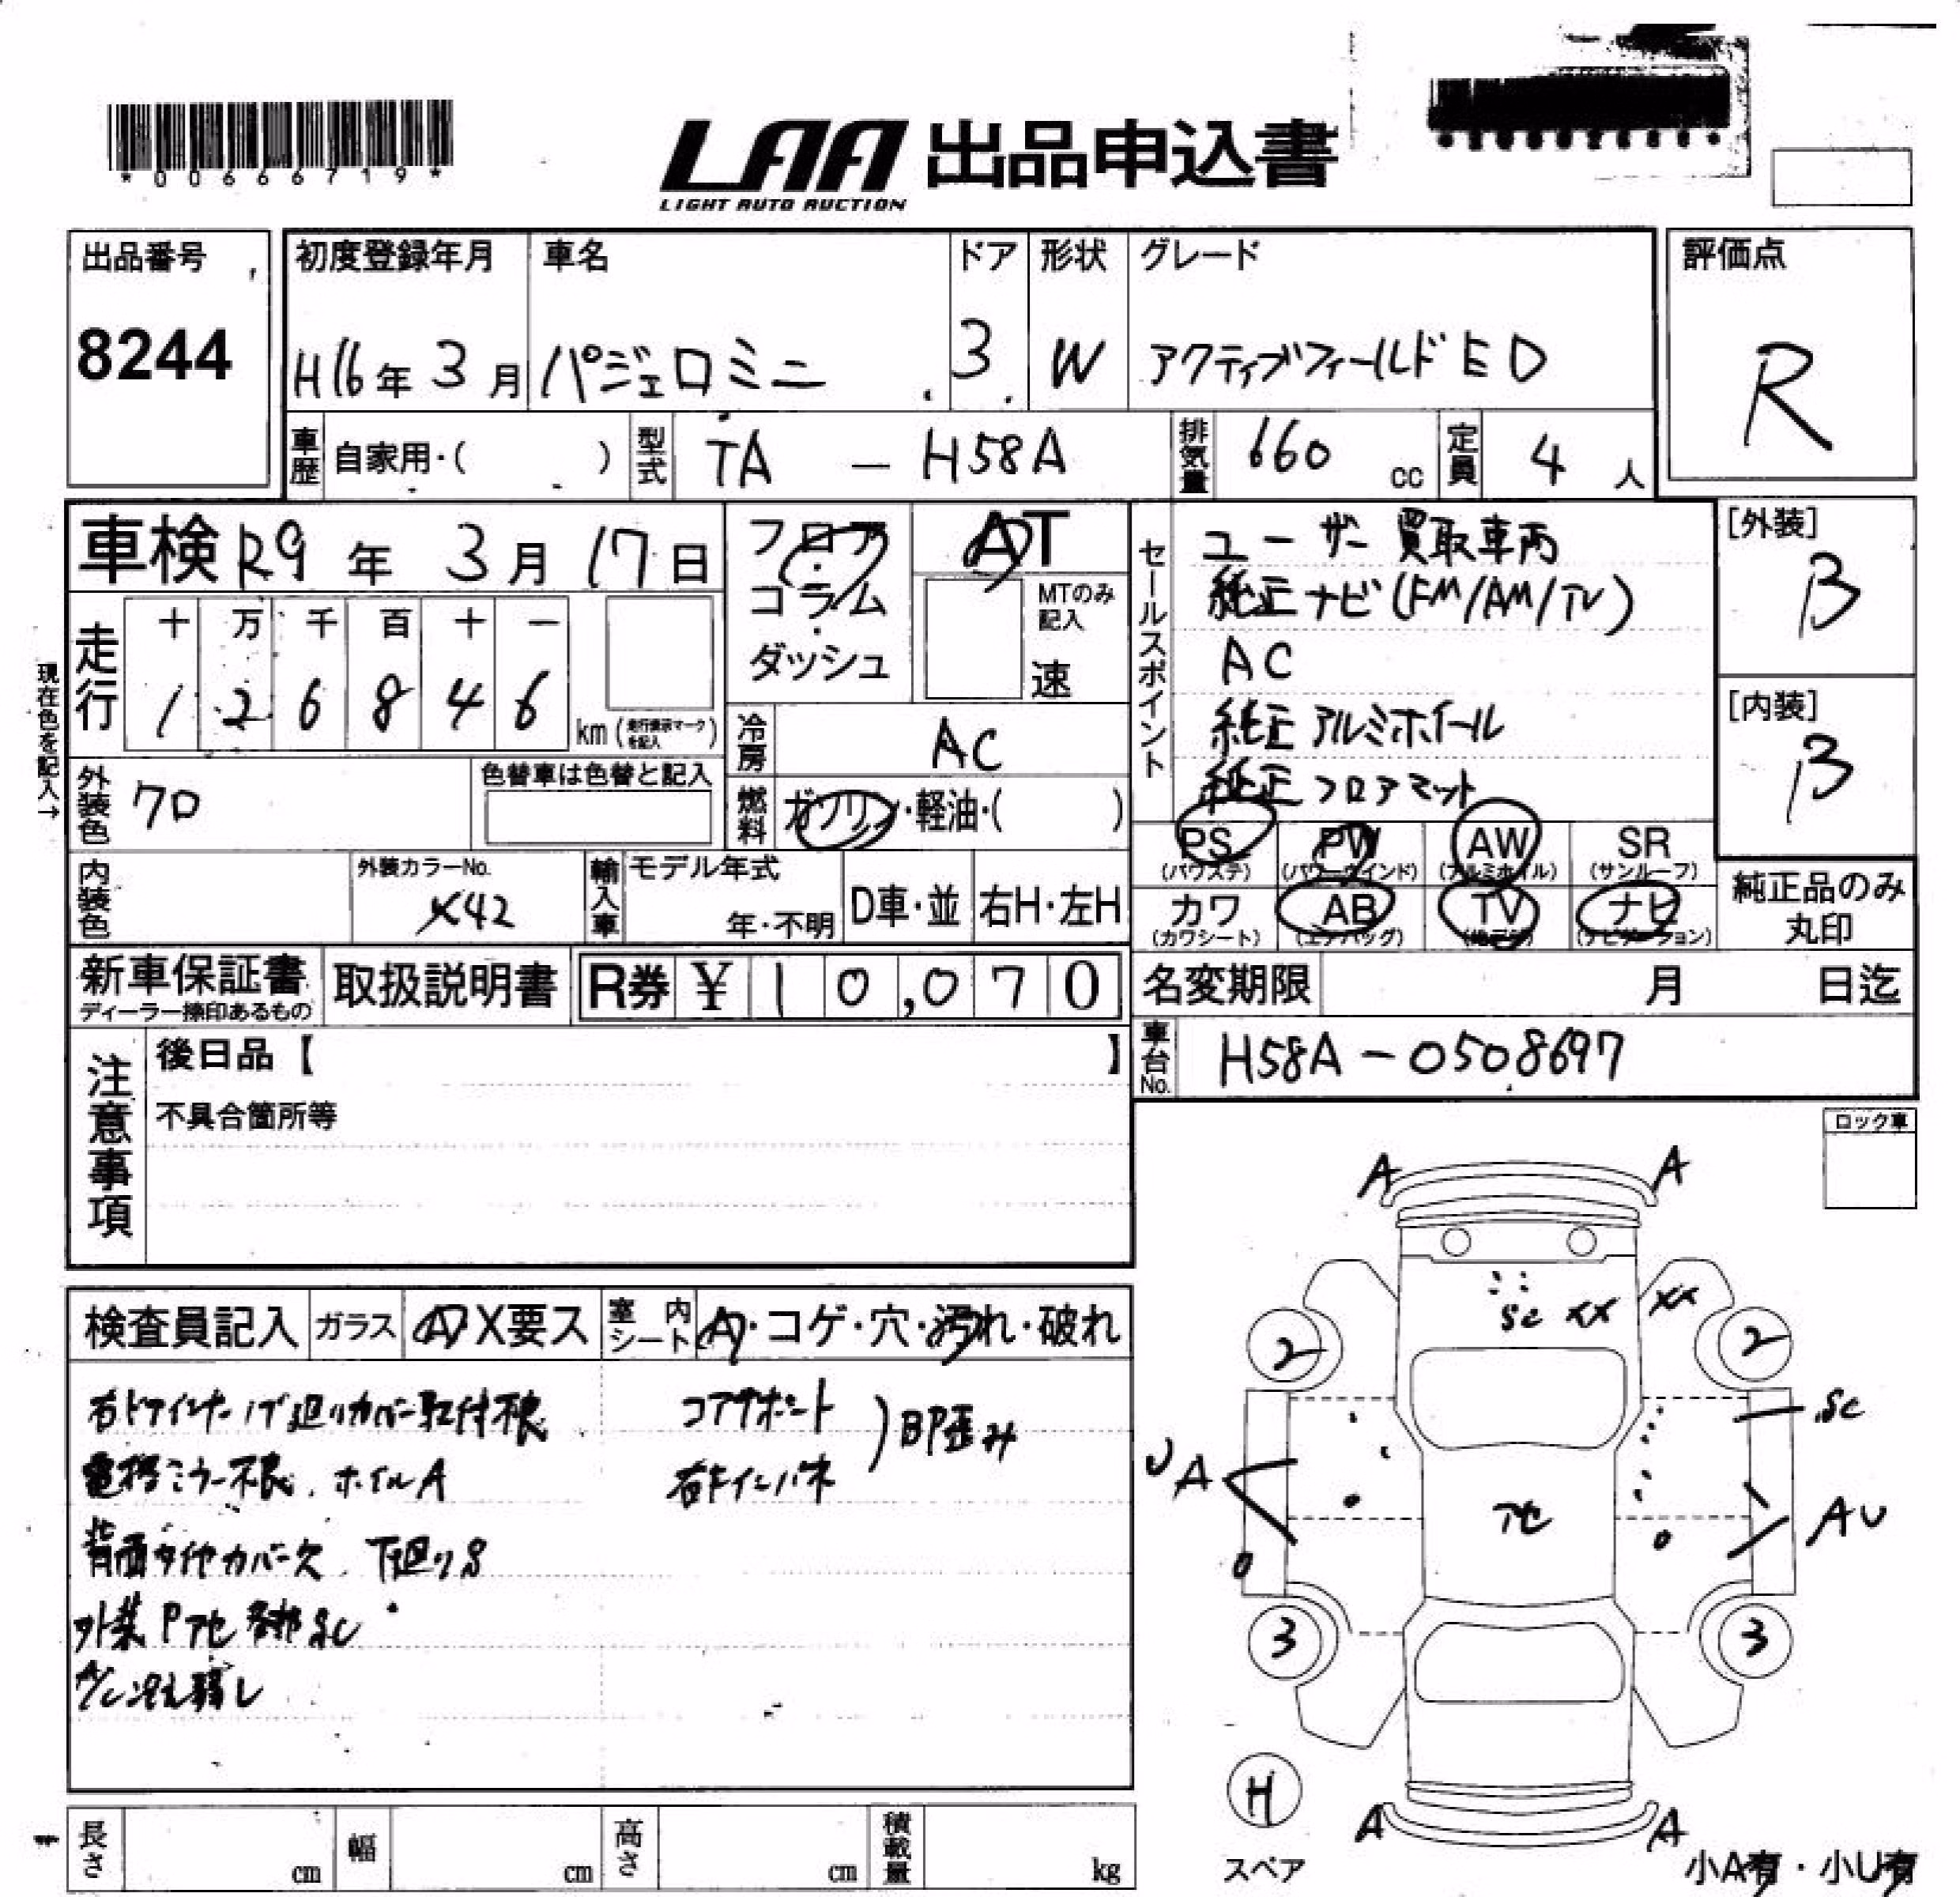 *00666719*
LAA 出品申込書
LIGHT AUTO AUCTION
出品番号
8244
初度登録年月
H16年3月
車名
パジェロミニ
ドア
3
形状
W
グレード
アクティブフィールドED
評価点
R
車歴 自家用・( )
型式 TA — H58A
排気量 660 cc
定員 4 人
車検 R9年 3月 17日
フロア・コラム・ダッシュ
AT
MTのみ記入
速
セールスポイント
ユーザー買取車両
純正ナビ(FM/AM/TV)
AC
純正アルミホイール
純正フロアマット
[外装]
B
[内装]
B
現在色を記入→
走行
十 万 千 百 十 一
1 2 6 8 4 6
km (走行表示マークを記入)
冷房 AC
外装色 クロ
色替車は色替と記入
燃料 ガソリン・軽油・( )
PS (パワステ)
PW (パワーウインド)
AW (アルミホイル)
SR (サンルーフ)
カワ (カワシート)
AB (エアバッグ)
TV
ナビ (ナビゲーション)
純正品のみ丸印
内装色
外装カラーNo.
X42
輸入車
モデル年式
年・不明
D車・並
右H・左H
新車保証書
ディーラー捺印あるもの
取扱説明書
R券 ¥ 10,070
名変期限 月 日迄
車台No. H58A-0508697
注意事項
後日品【 】
不具合箇所等
ロック車
検査員記入
ガラス
A・X要ス
室内シート
A・コゲ・穴・汚れ・破れ
右ドアインナーノブ廻りカバー取付不良
電格ミラー不良、ホイルA
背面タイヤカバー欠、下廻りS
外装Pアセ 各部SC
コアサポート
右Fインパネ
)BP歪み
A A
SC XX XX
2 2
SC
UA
アセ
AU
3 3
H
スペア
A A
小A有・小U有
長さ cm
幅 cm
高さ cm
積載量 kg